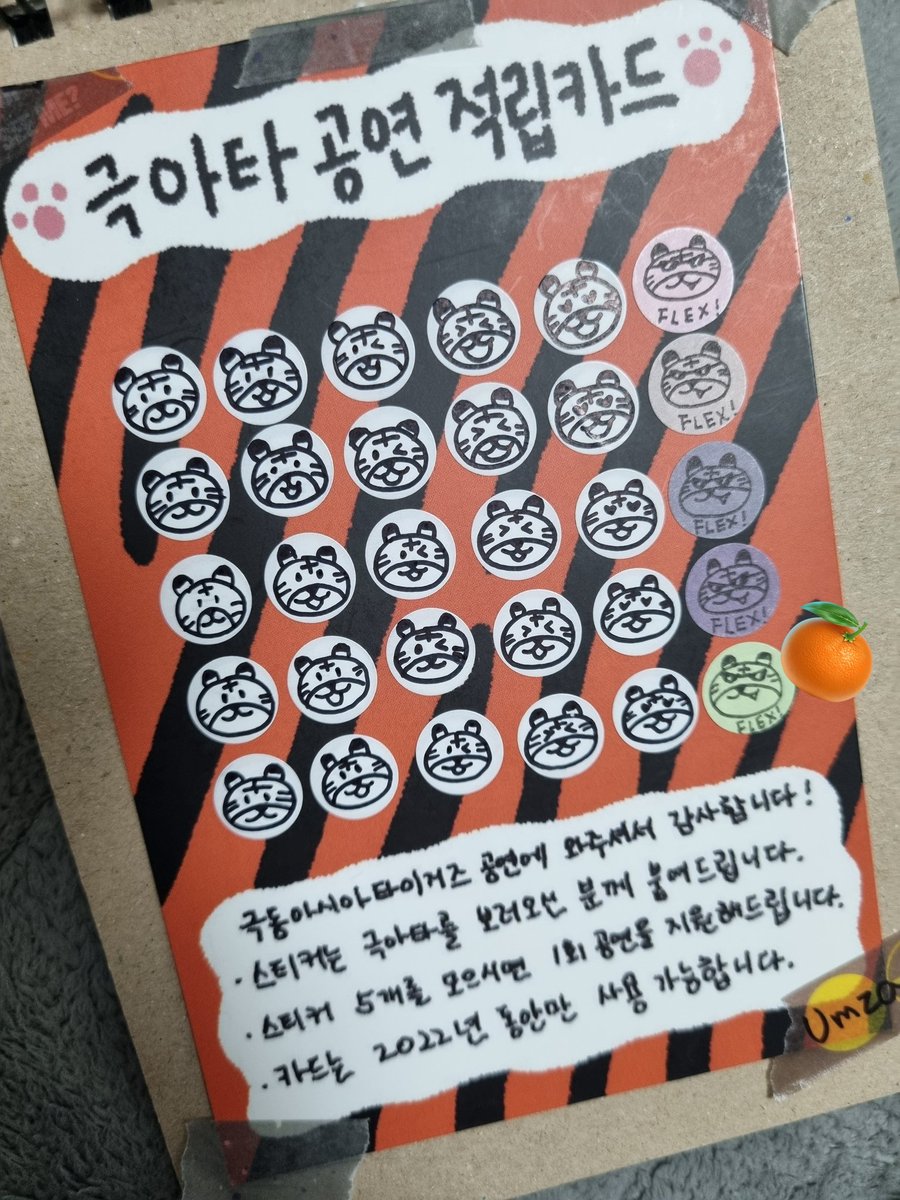 극아타 공연 적립카드
FLEX!
FLEX!
FLEX!
FLEX!
FLEX!
극동아시아타이거즈 공연에 와주셔서 감사합니다!
· 스티커는 극아타를 보러오신 분께 붙여드립니다.
· 스티커 5개를 모으시면 1회 공연을 지원해드립니다.
· 카드는 2022년 동안만 사용 가능합니다.